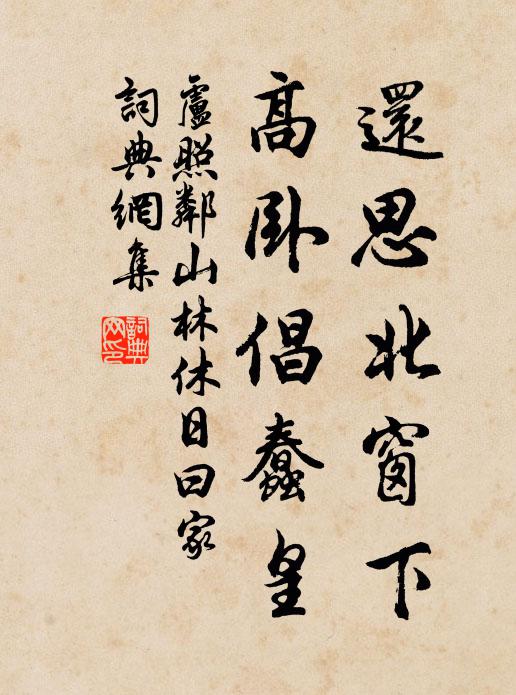 還思北窗下
高卧倡蠢皇
盧照鄰山林休日曰家
詞典網集
詞典网印